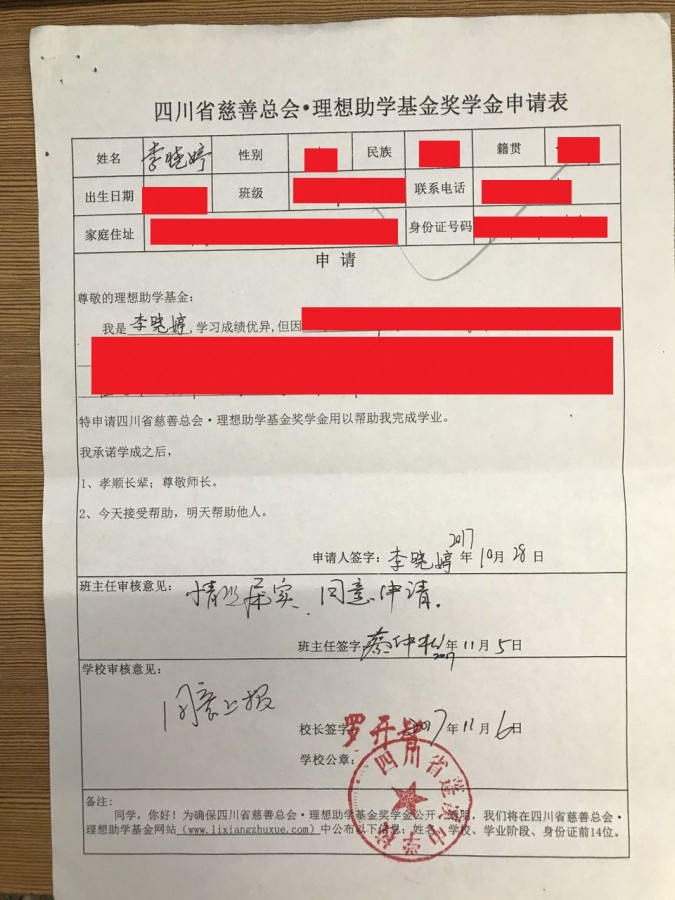 四川省慈善总会•理想助学基金奖学金申请表
姓名 李晓婷 性别 民族 籍贯
出生日期 班级 联系电话
家庭住址 身份证号码
申 请
尊敬的理想助学基金：
我是 李晓婷 ,学习成绩优异,但因
特申请四川省慈善总会•理想助学基金奖学金用以帮助我完成学业。
我承诺学成之后，
1、孝顺长辈；尊敬师长。
2、今天接受帮助，明天帮助他人。
申请人签字：李晓婷 2017年10月28日
班主任审核意见：情况属实，同意申请。
班主任签字：蔡仲 2017年11月5日
学校审核意见：
同意上报
校长签字：罗开 2017年11月6日
学校公章：
四川省蓬溪中学校
备注：
同学，你好！为确保四川省慈善总会•理想助学基金奖学金公开、透明，我们将在四川省慈善总会•
理想助学基金网站（www.lixiangzhuxue.com）中公布以下信息：姓名、学校、学业阶段、身份证前14位。